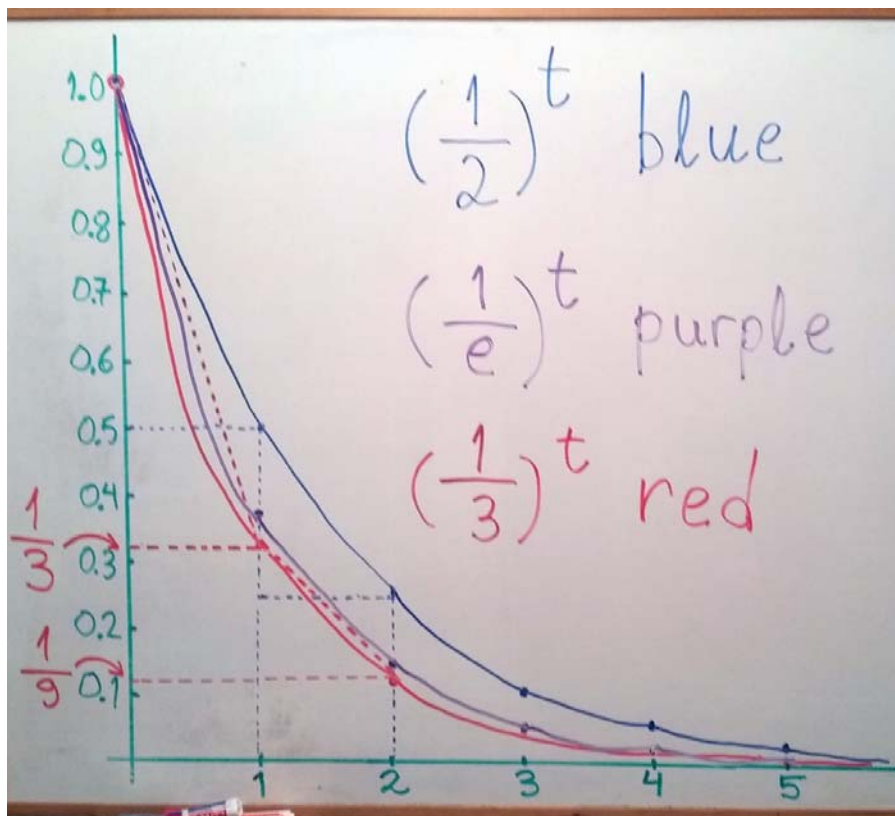 1.0
0.9
0.8
0.7
0.6
0.5
0.4
0.3
0.2
0.1
1/3
1/9
1 2 3 4 5
(1/2)^t blue
(1/e)^t purple
(1/3)^t red